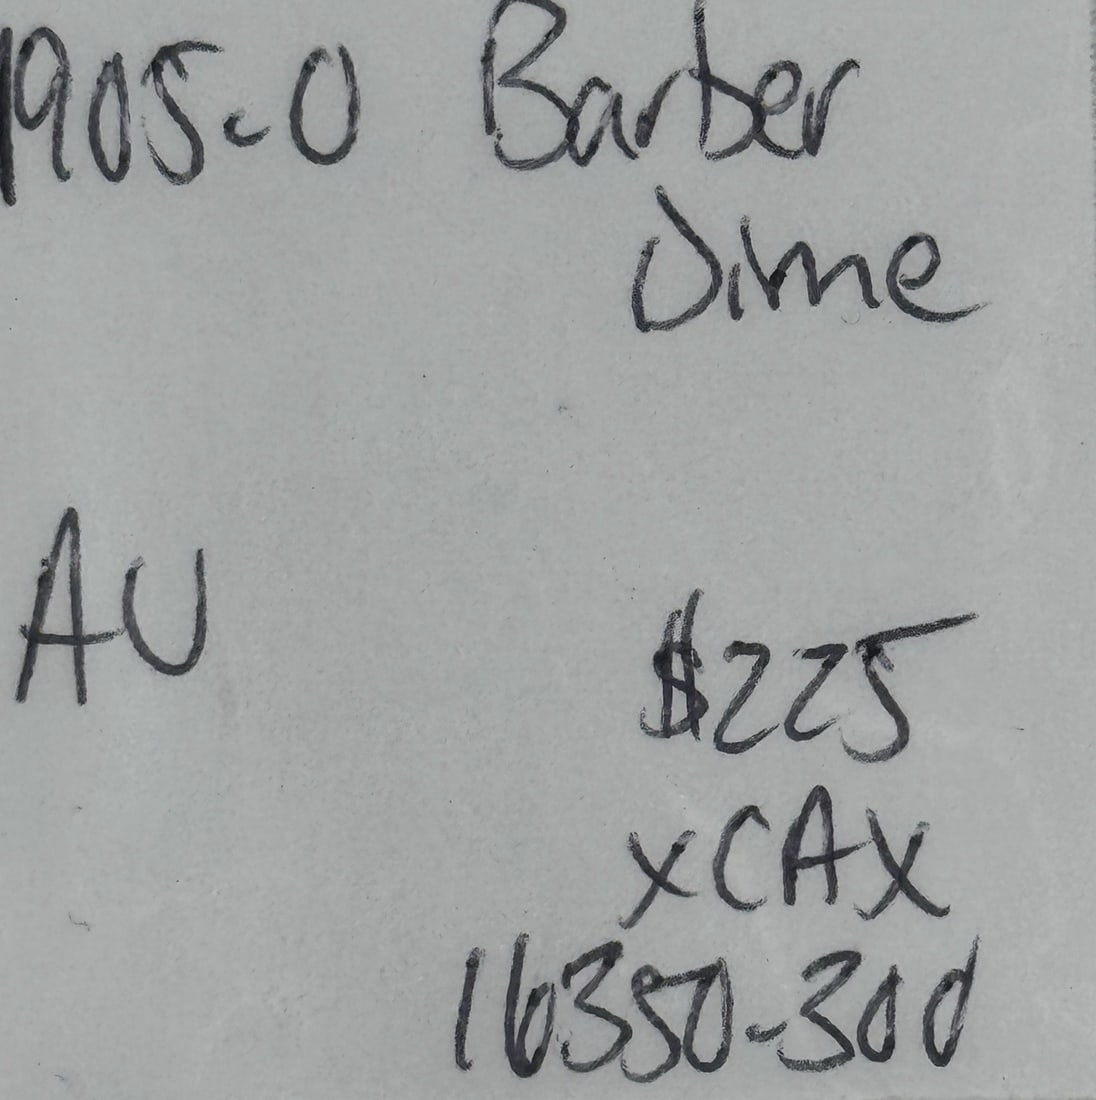 1905-O Barber
Dime
AU
$225
xCAx
16350-300